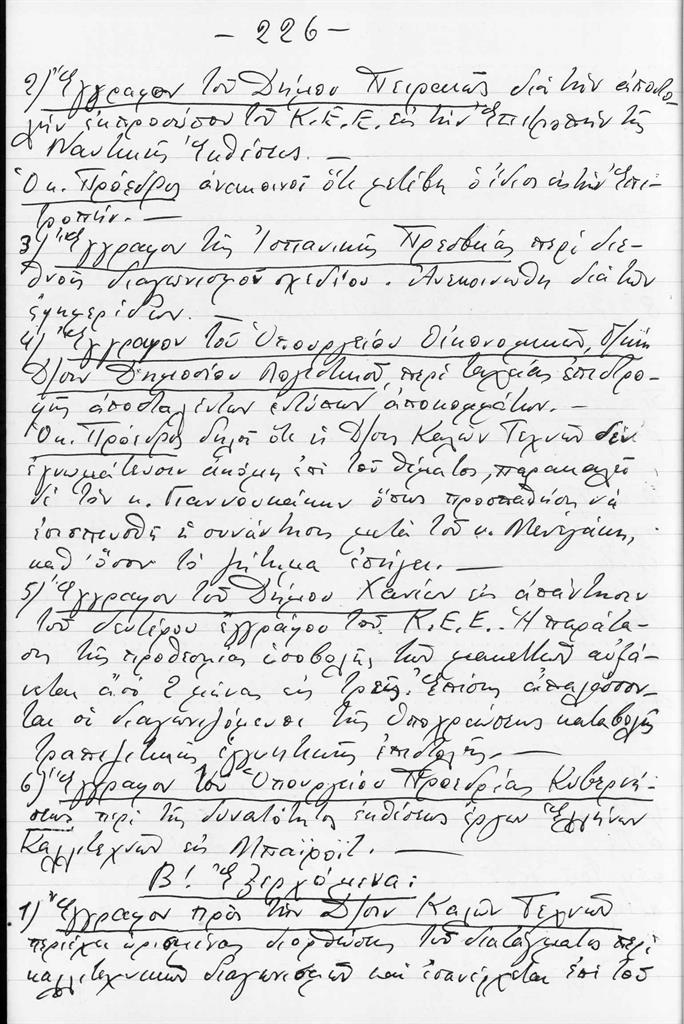 - 226 -
2) Ἔγγραφον τοῦ Δήμου Πειραιῶς διὰ τὴν ἀποστο-
λὴν ἐκπροσώπου τοῦ Κ.Ε.Ε. εἰς τὴν Ἐπιτροπὴν τῆς
Ναυτικῆς Ἐκθέσεως. —
Ὁ κ. Πρόεδρος ἀνακοινοῖ ὅτι μετέβη ὁ ἴδιος εἰς τὴν Ἐπι-
τροπήν. —
3) Ἔγγραφον τῆς Ἱσπανικῆς Πρεσβείας περὶ διε-
θνοῦς διαγωνισμοῦ σχεδίου. Ἀνεκοινώθη διὰ τῶν
ἐφημερίδων.
4) Ἔγγραφον τοῦ Ὑπουργείου Οἰκονομικῶν,
Δ/σιν Δημοσίου Λογιστικοῦ, περὶ ταχείας ἐπιστρο-
φῆς ἀποσταλέντων ἐντύπων ἀποκομμάτων. —
Ὁ κ. Πρόεδρος δηλοῖ ὅτι ἡ Δ/σις Καλῶν Τεχνῶν δὲν
ἐγνωμάτευσεν ἀκόμη ἐπὶ τοῦ θέματος, παρακαλεῖ
δὲ τὸν κ. Γιαννουκάκην ὅπως προσπαθήση νὰ
ἐπισπευσθῆ ἡ συνάντησις μετὰ τοῦ κ.
καθ' ὅσον τὸ ζήτημα ἐπείγει. —
5) Ἔγγραφον τοῦ Δήμου Χανίων εἰς ἀπάντησιν
τοῦ δευτέρου ἐγγράφου τοῦ Κ.Ε.Ε. Ἡ παράτα-
σις τῆς προθεσμίας ὑποβολῆς τῶν μακεττῶν αὐξά-
νεται ἀπὸ 2 μῆνας εἰς τρεῖς. Ἐπίσης ἀπαλάσσον-
ται οἱ διαγωνιζόμενοι τῆς ὑποχρεώσεως καταβολῆς
τραπεζιτικῆς ἐγγυητικῆς ἐπιστολῆς. —
6) Ἔγγραφον τοῦ Ὑπουργείου Προεδρίας Κυβερνή-
σεως περὶ τῆς δυνατότητος ἐκθέσεως ἔργων Ἑλλήνων
Καλλιτεχνῶν εἰς Μπαϊρόϊτ. —
Β! Ἐξερχόμενα:
1) Ἔγγραφον πρὸς τὴν Δ/σιν Καλῶν Τεχνῶν
περιέχει ὡρισμένας διορθώσεις τοῦ διατάγματος περὶ
καλλιτεχνικῶν διαγωνισμῶν καὶ ἐπανέρχεται ἐπὶ τοῦ